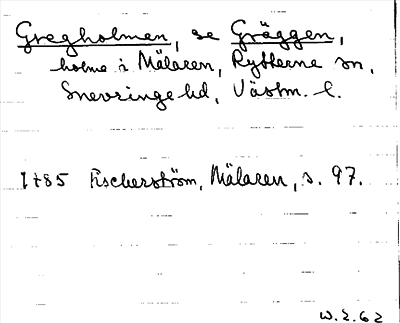 Gregholmen, se Gräggen,
holme i Mälaren, Rytterne sn,
Snevringe hd, Västm. l.
1785 Fischerström, Mälaren, s. 97.
W. Z. 62